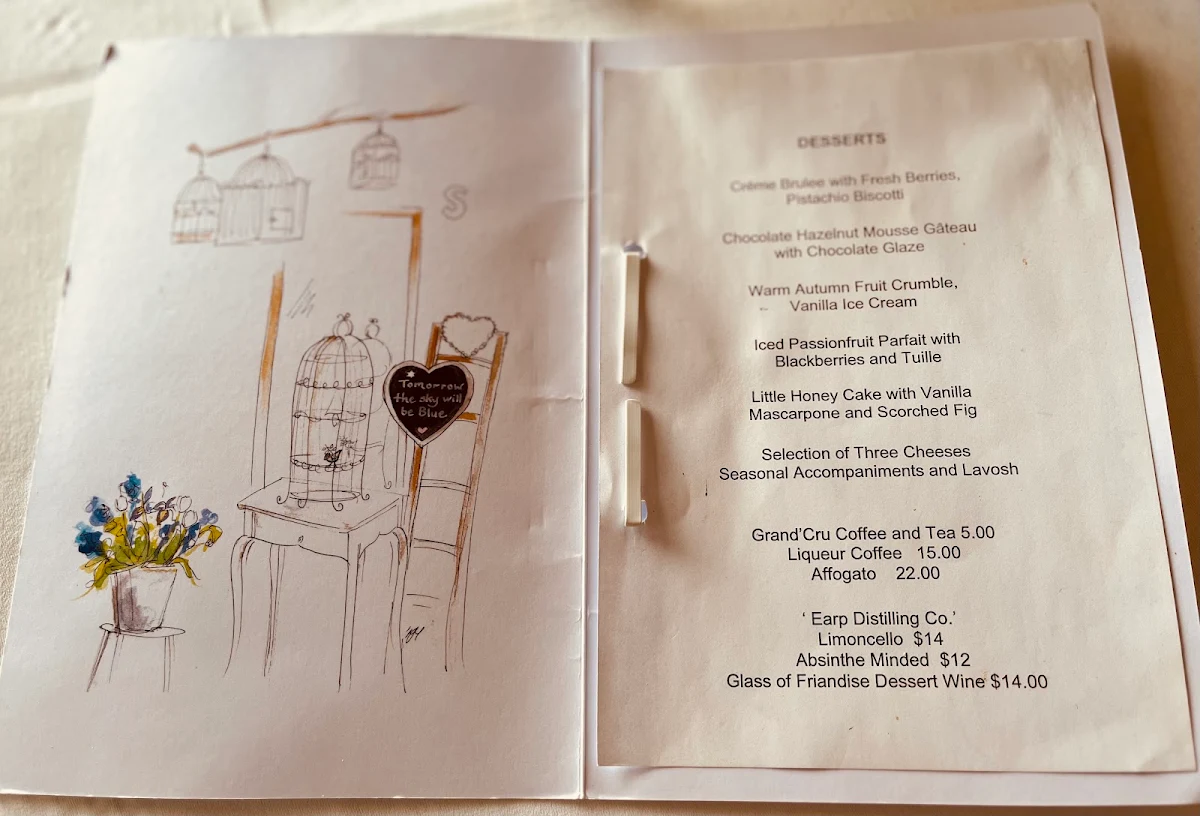 S
Tomorrow
the sky will
be Blue
DESSERTS
Crème Brulee with Fresh Berries,
Pistachio Biscotti
Chocolate Hazelnut Mousse Gâteau
with Chocolate Glaze
Warm Autumn Fruit Crumble,
Vanilla Ice Cream
Iced Passionfruit Parfait with
Blackberries and Tuille
Little Honey Cake with Vanilla
Mascarpone and Scorched Fig
Selection of Three Cheeses
Seasonal Accompaniments and Lavosh
Grand'Cru Coffee and Tea 5.00
Liqueur Coffee 15.00
Affogato 22.00
' Earp Distilling Co.'
Limoncello $14
Absinthe Minded $12
Glass of Friandise Dessert Wine $14.00